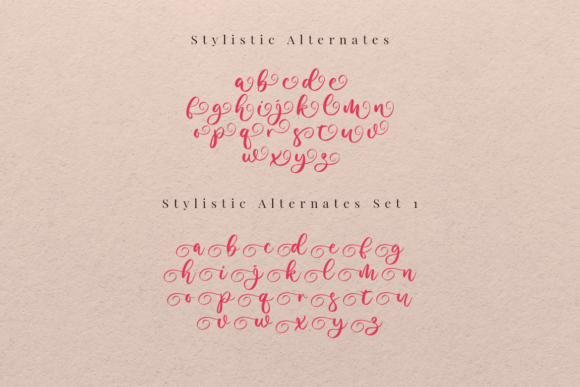 Stylistic Alternates
a b c d e
f g h i j k l m n
o p q r s t u v
w x y z
Stylistic Alternates Set 1
a b c d e f g
h i j k l m n
o p q r s t u
v w x y z